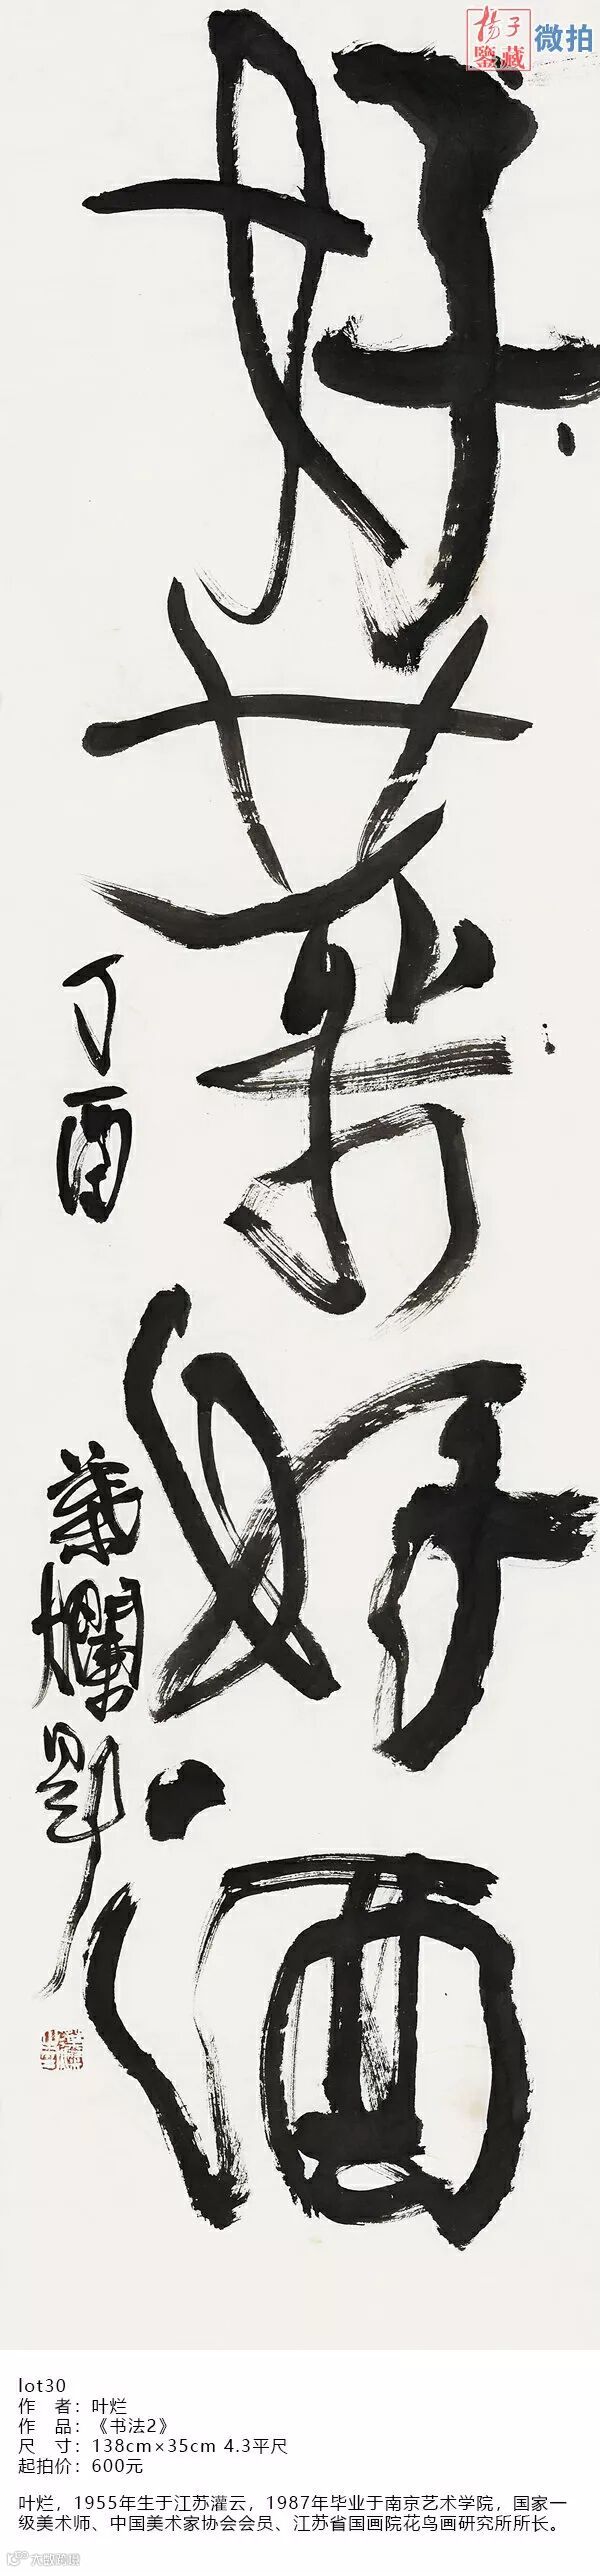 扬子
鉴藏
微拍
好菜好酒
丁酉
葉爛题
lot30
作 者：叶烂
作 品：《书法2》
尺 寸：138cm×35cm 4.3平尺
起拍价：600元
叶烂，1955年生于江苏灌云，1987年毕业于南京艺术学院，国家一
级美术师、中国美术家协会会员、江苏省国画院花鸟画研究所所长。
大数跨境